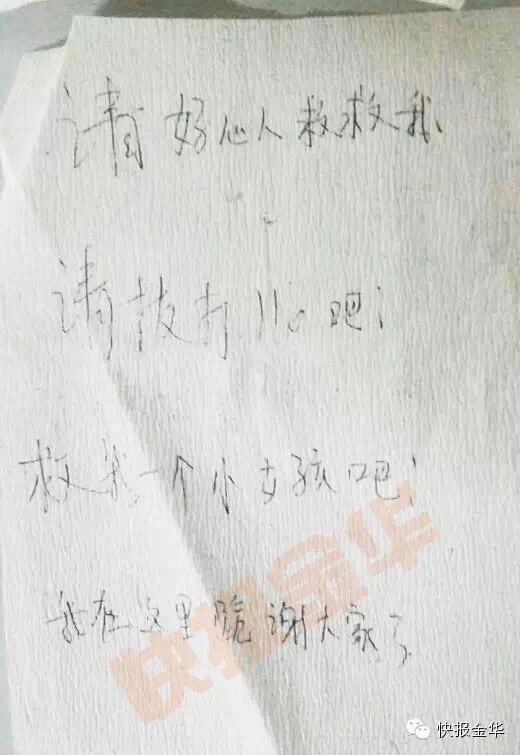 请好心人救救我
请拨打110吧！
救我一个小女孩吧！
我在这里跪谢大家了
快报金华
快报金华